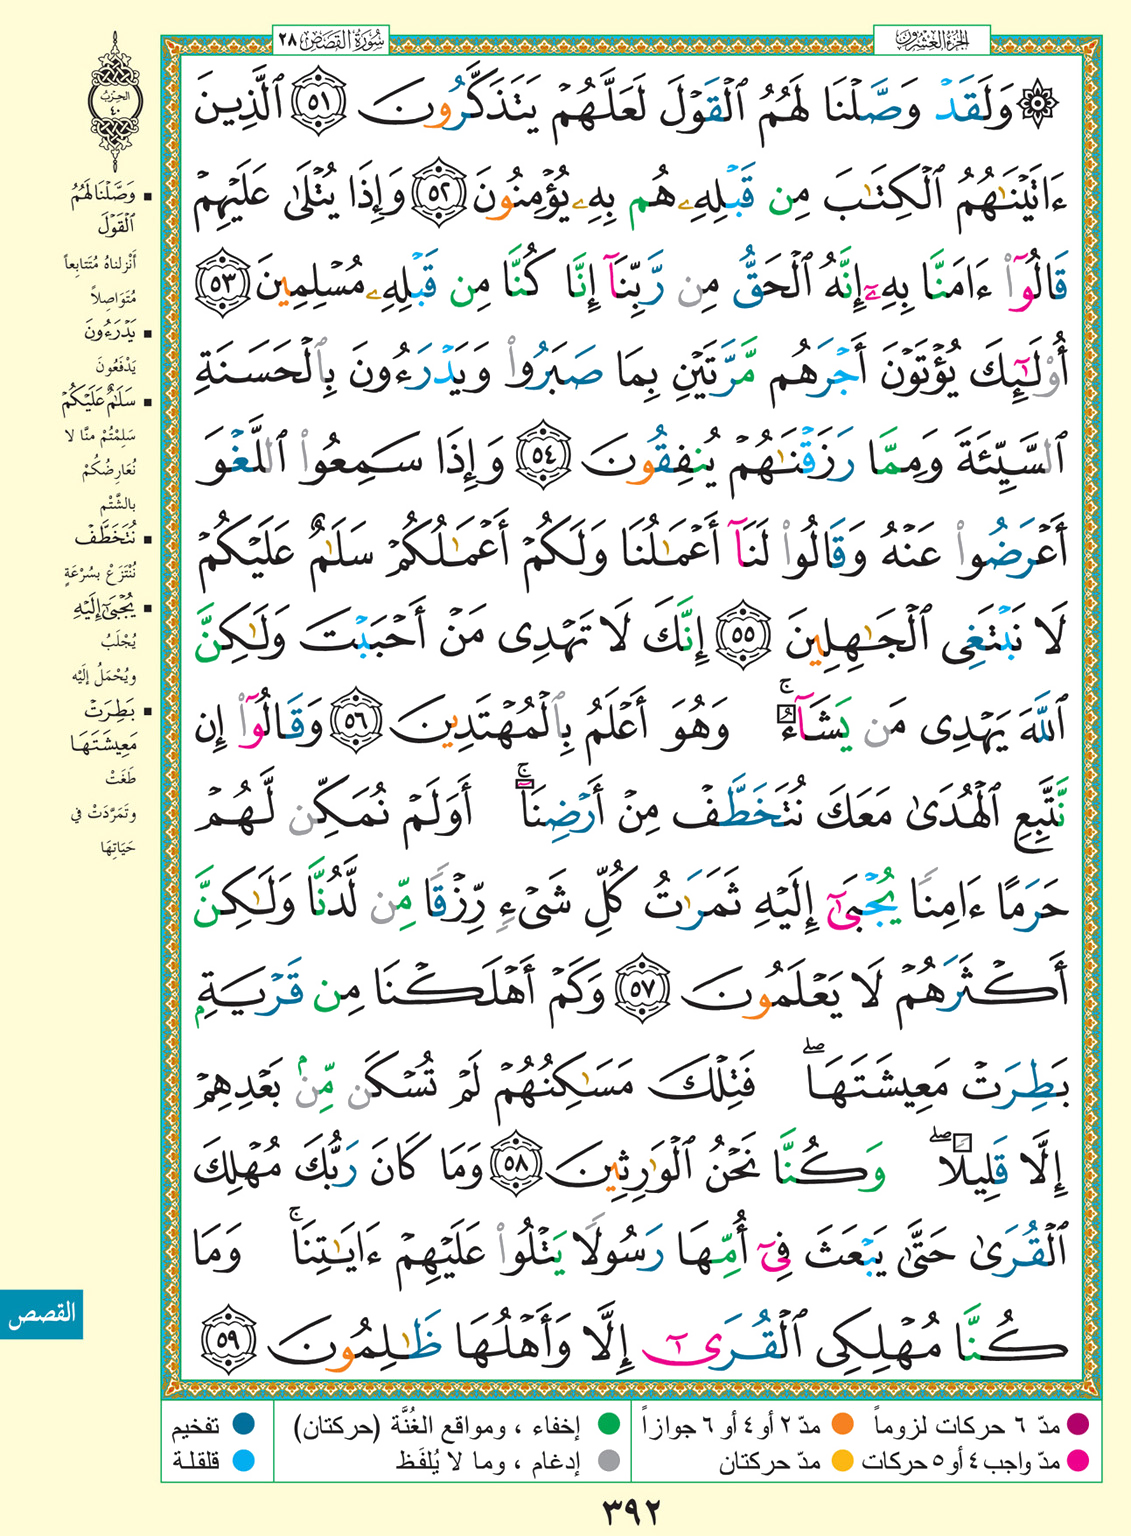 الجزء العشرون
سورة القصص ٢٨
۞ وَلَقَدْ وَصَّلْنَا لَهُمُ ٱلْقَوْلَ لَعَلَّهُمْ يَتَذَكَّرُونَ ٥١ ٱلَّذِينَ
ءَاتَيْنَٰهُمُ ٱلْكِتَٰبَ مِن قَبْلِهِۦ هُم بِهِۦ يُؤْمِنُونَ ٥٢ وَإِذَا يُتْلَىٰ عَلَيْهِمْ
قَالُوٓا۟ ءَامَنَّا بِهِۦٓ إِنَّهُ ٱلْحَقُّ مِن رَّبِّنَآ إِنَّا كُنَّا مِن قَبْلِهِۦ مُسْلِمِينَ ٥٣
أُو۟لَٰٓئِكَ يُؤْتَوْنَ أَجْرَهُم مَّرَّتَيْنِ بِمَا صَبَرُوا۟ وَيَدْرَءُونَ بِٱلْحَسَنَةِ
ٱلسَّيِّئَةَ وَمِمَّا رَزَقْنَٰهُمْ يُنفِقُونَ ٥٤ وَإِذَا سَمِعُوا۟ ٱللَّغْوَ
أَعْرَضُوا۟ عَنْهُ وَقَالُوا۟ لَنَآ أَعْمَٰلُنَا وَلَكُمْ أَعْمَٰلُكُمْ سَلَٰمٌ عَلَيْكُمْ
لَا نَبْتَغِى ٱلْجَٰهِلِينَ ٥٥ إِنَّكَ لَا تَهْدِى مَنْ أَحْبَبْتَ وَلَٰكِنَّ
ٱللَّهَ يَهْدِى مَن يَشَآءُ ۚ وَهُوَ أَعْلَمُ بِٱلْمُهْتَدِينَ ٥٦ وَقَالُوٓا۟ إِن
نَّتَّبِعِ ٱلْهُدَىٰ مَعَكَ نُتَخَطَّفْ مِنْ أَرْضِنَآ ۚ أَوَلَمْ نُمَكِّن لَّهُمْ
حَرَمًا ءَامِنًا يُجْبَىٰٓ إِلَيْهِ ثَمَرَٰتُ كُلِّ شَىْءٍ رِّزْقًا مِّن لَّدُنَّا وَلَٰكِنَّ
أَكْثَرَهُمْ لَا يَعْلَمُونَ ٥٧ وَكَمْ أَهْلَكْنَا مِن قَرْيَةٍۭ
بَطِرَتْ مَعِيشَتَهَا ۖ فَتِلْكَ مَسَٰكِنُهُمْ لَمْ تُسْكَن مِّنۢ بَعْدِهِمْ
إِلَّا قَلِيلًا ۖ وَكُنَّا نَحْنُ ٱلْوَٰرِثِينَ ٥٨ وَمَا كَانَ رَبُّكَ مُهْلِكَ
ٱلْقُرَىٰ حَتَّىٰ يَبْعَثَ فِىٓ أُمِّهَا رَسُولًا يَتْلُوا۟ عَلَيْهِمْ ءَايَٰتِنَا ۚ وَمَا
كُنَّا مُهْلِكِى ٱلْقُرَىٰٓ إِلَّا وَأَهْلُهَا ظَٰلِمُونَ ٥٩
الحزب
٤٠
▪ وَصَّلْنَا لَهُمُ
ٱلْقَوْلَ
أَنْزلناهُ مُتَتابِعاً
مُتَوَاصِلاً
▪ يَدْرَءُونَ
يَدْفَعُونَ
▪ سَلَٰمٌ عَلَيْكُمْ
سَلِمْتُمْ منَّا لا
نُعَارِضُكُمْ
بالشَّتْم
▪ نُتَخَطَّفْ
نُنْتَزَعْ بسُرْعَةٍ
▪ يُجْبَىٰٓ إِلَيْهِ
يُجْلَبُ
ويُحْمَلُ إلَيْه
▪ بَطِرَتْ
مَعِيشَتَهَا
طَغَتْ
وتَمَرَّدَتْ في
حَيَاتِهَا
القصص
مدّ ٦ حركات لزوماً
مدّ ٢ أو ٤ أو ٦ جوازاً
إخفاء ، ومواقع الغُنَّة (حركتان)
تفخيم
مدّ واجب ٤ أو ٥ حركات
مدّ حركتان
إدغام ، وما لا يُلفَظ
قلقلة
٣٩٢